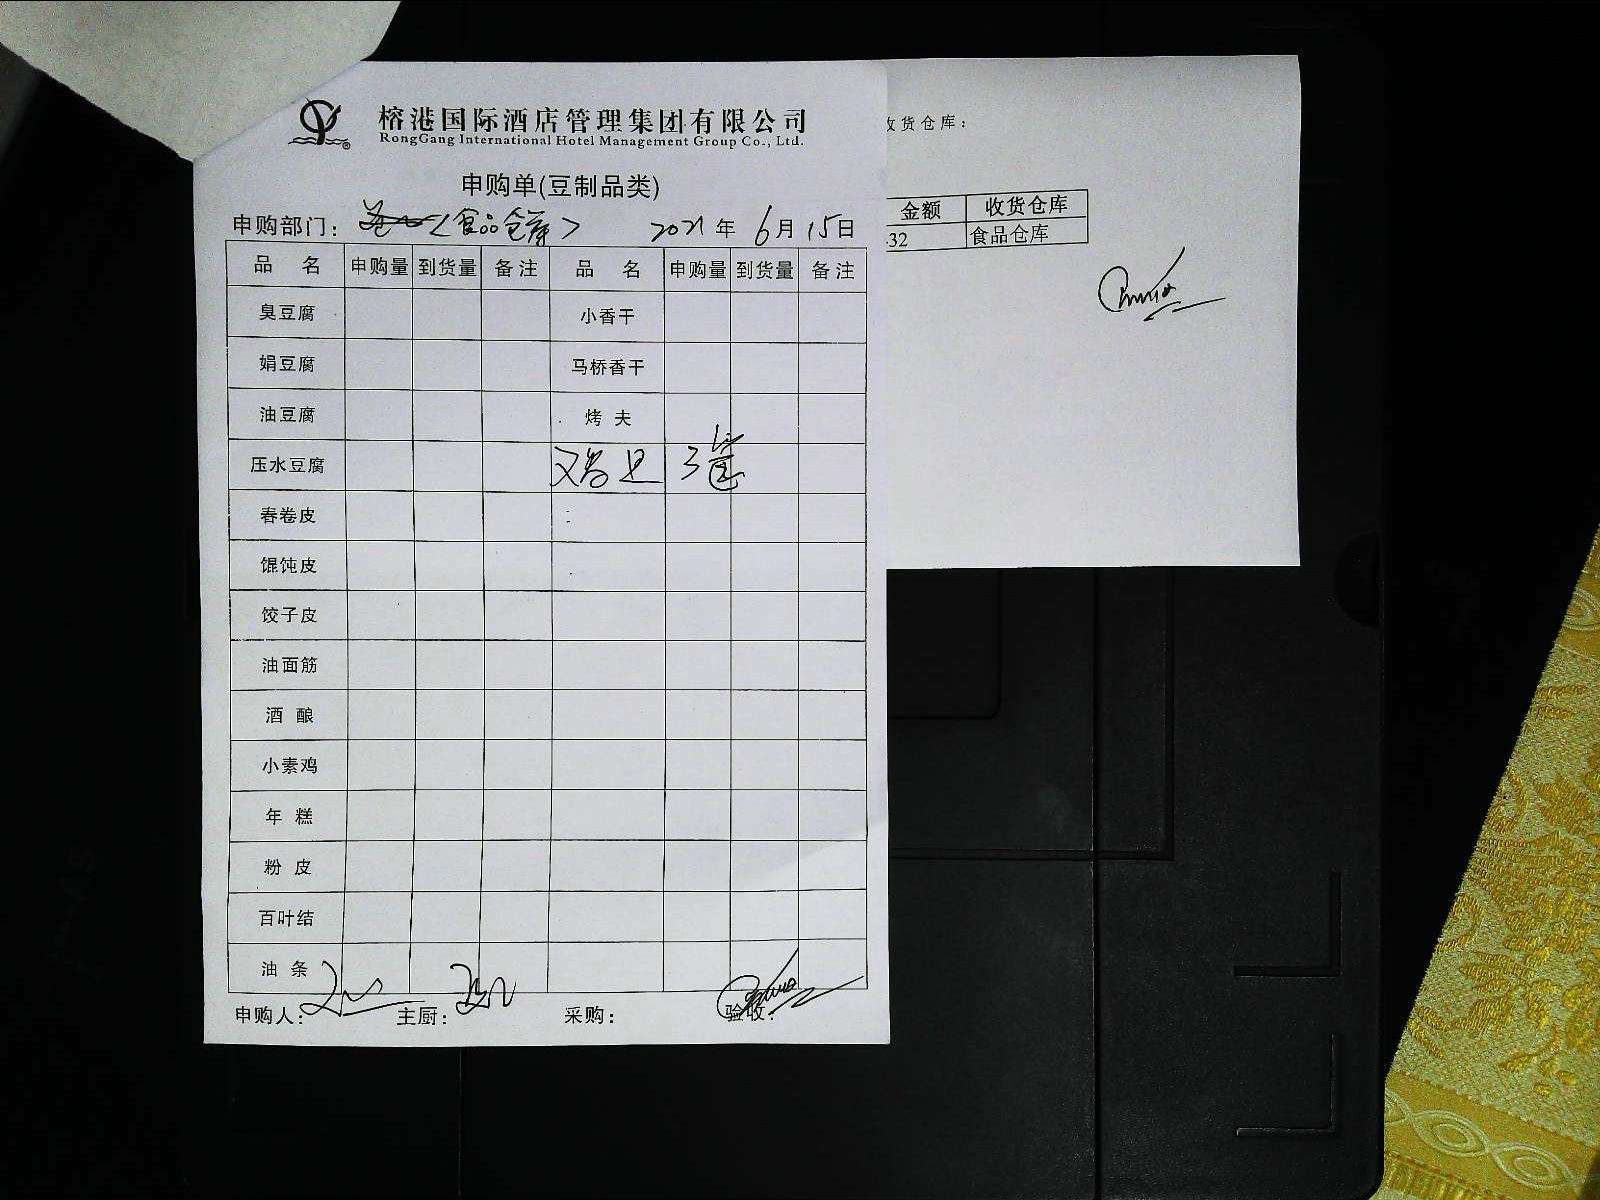 榕港国际酒店管理集团有限公司
RongGang International Hotel Management Group Co., Ltd.
申购单(豆制品类)
申购部门： (食品仓库) 2021年 6月 15日
品 名 申购量 到货量 备注 品 名 申购量 到货量 备注
臭豆腐 小香干
娟豆腐 马桥香干
油豆腐 烤 夫
压水豆腐
春卷皮
馄饨皮
饺子皮
油面筋
酒 酿
小素鸡
年 糕
粉 皮
百叶结
油 条
申购人： 主厨： 采购： 验收：
收货仓库：
金额 收货仓库
32 食品仓库